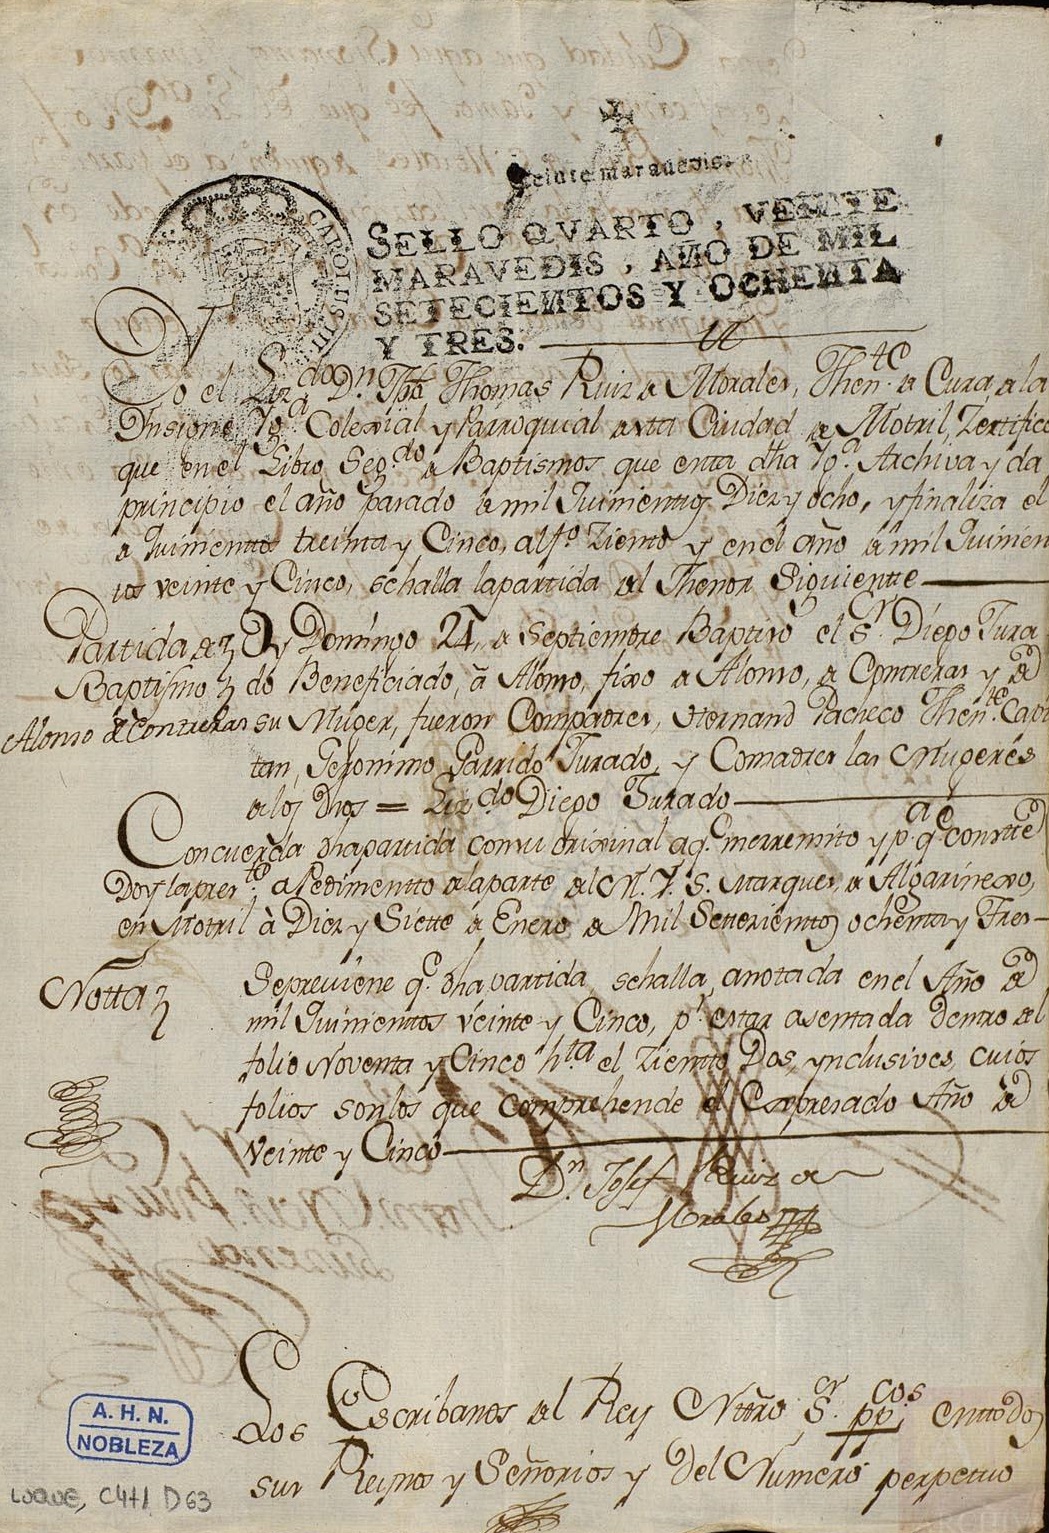 Veinte maravedis.
SELLO QVARTO, VEINTE
MARAVEDIS, AÑO DE MIL
SETECIENTOS Y OCHENTA
Y TRES.
CAROLUS III
Yo el Lizdo Dn Jph Thomas Ruiz de Morales, Thente de Cura de la
Insigne Yga Colexial y Parroquial de esta Ciudad de Motril, Zertifico
que en el Libro Segdo de Baptismos que en esta dha Yga Archiva y da
principio el año pasado de mil Quinientos Diez y ocho, y finaliza el
de Quinientos treinta y Cinco, al fo Ziento y en el año de mil Quinien
tos veinte y Cinco, se halla la partida del Thenor Siguiente
Partida de
Baptismo
Alonso de Contreras
Oy Domingo 24, de Septiembre Baptizo el Sr Diego Jura
do Beneficiado, à Alonso, fixo de Alonso, de Contreras y de
su Muger, fueron Compadres, Hernand Pacheco Thente Capi
tan, Jeronimo Garrido Jurado, y Comadres las Mugeres
de los dhos = Lizdo Diego Jurado
Concuerda dha partida con su orixinal a q.e me rremito y pa qe conste
Doy la preste a Pedimento de la parte del M. Y. S. Marques, de Algarinexo,
en Motril à Diez y Siette de Enero de Mil Settezientos ochenta y Tres
Notta
Se previene qe dha partida, se halla, anotada en el Año de
mil Quinientos veinte y Cinco, pr estar asentada dentro del
folio Noventa y Cinco hta el Ziento Dos, ynclusives, cuios
folios son los que comprehende el Expresado Año de
veinte y Cinco
Dn Josef Ruiz de
Morales
Los Escribanos del Rey Ntro Sr ppcos en todos
sus Reynos y Señorios y del Numero perpetuo
A. H. N.
NOBLEZA
LUQUE, C471 D63